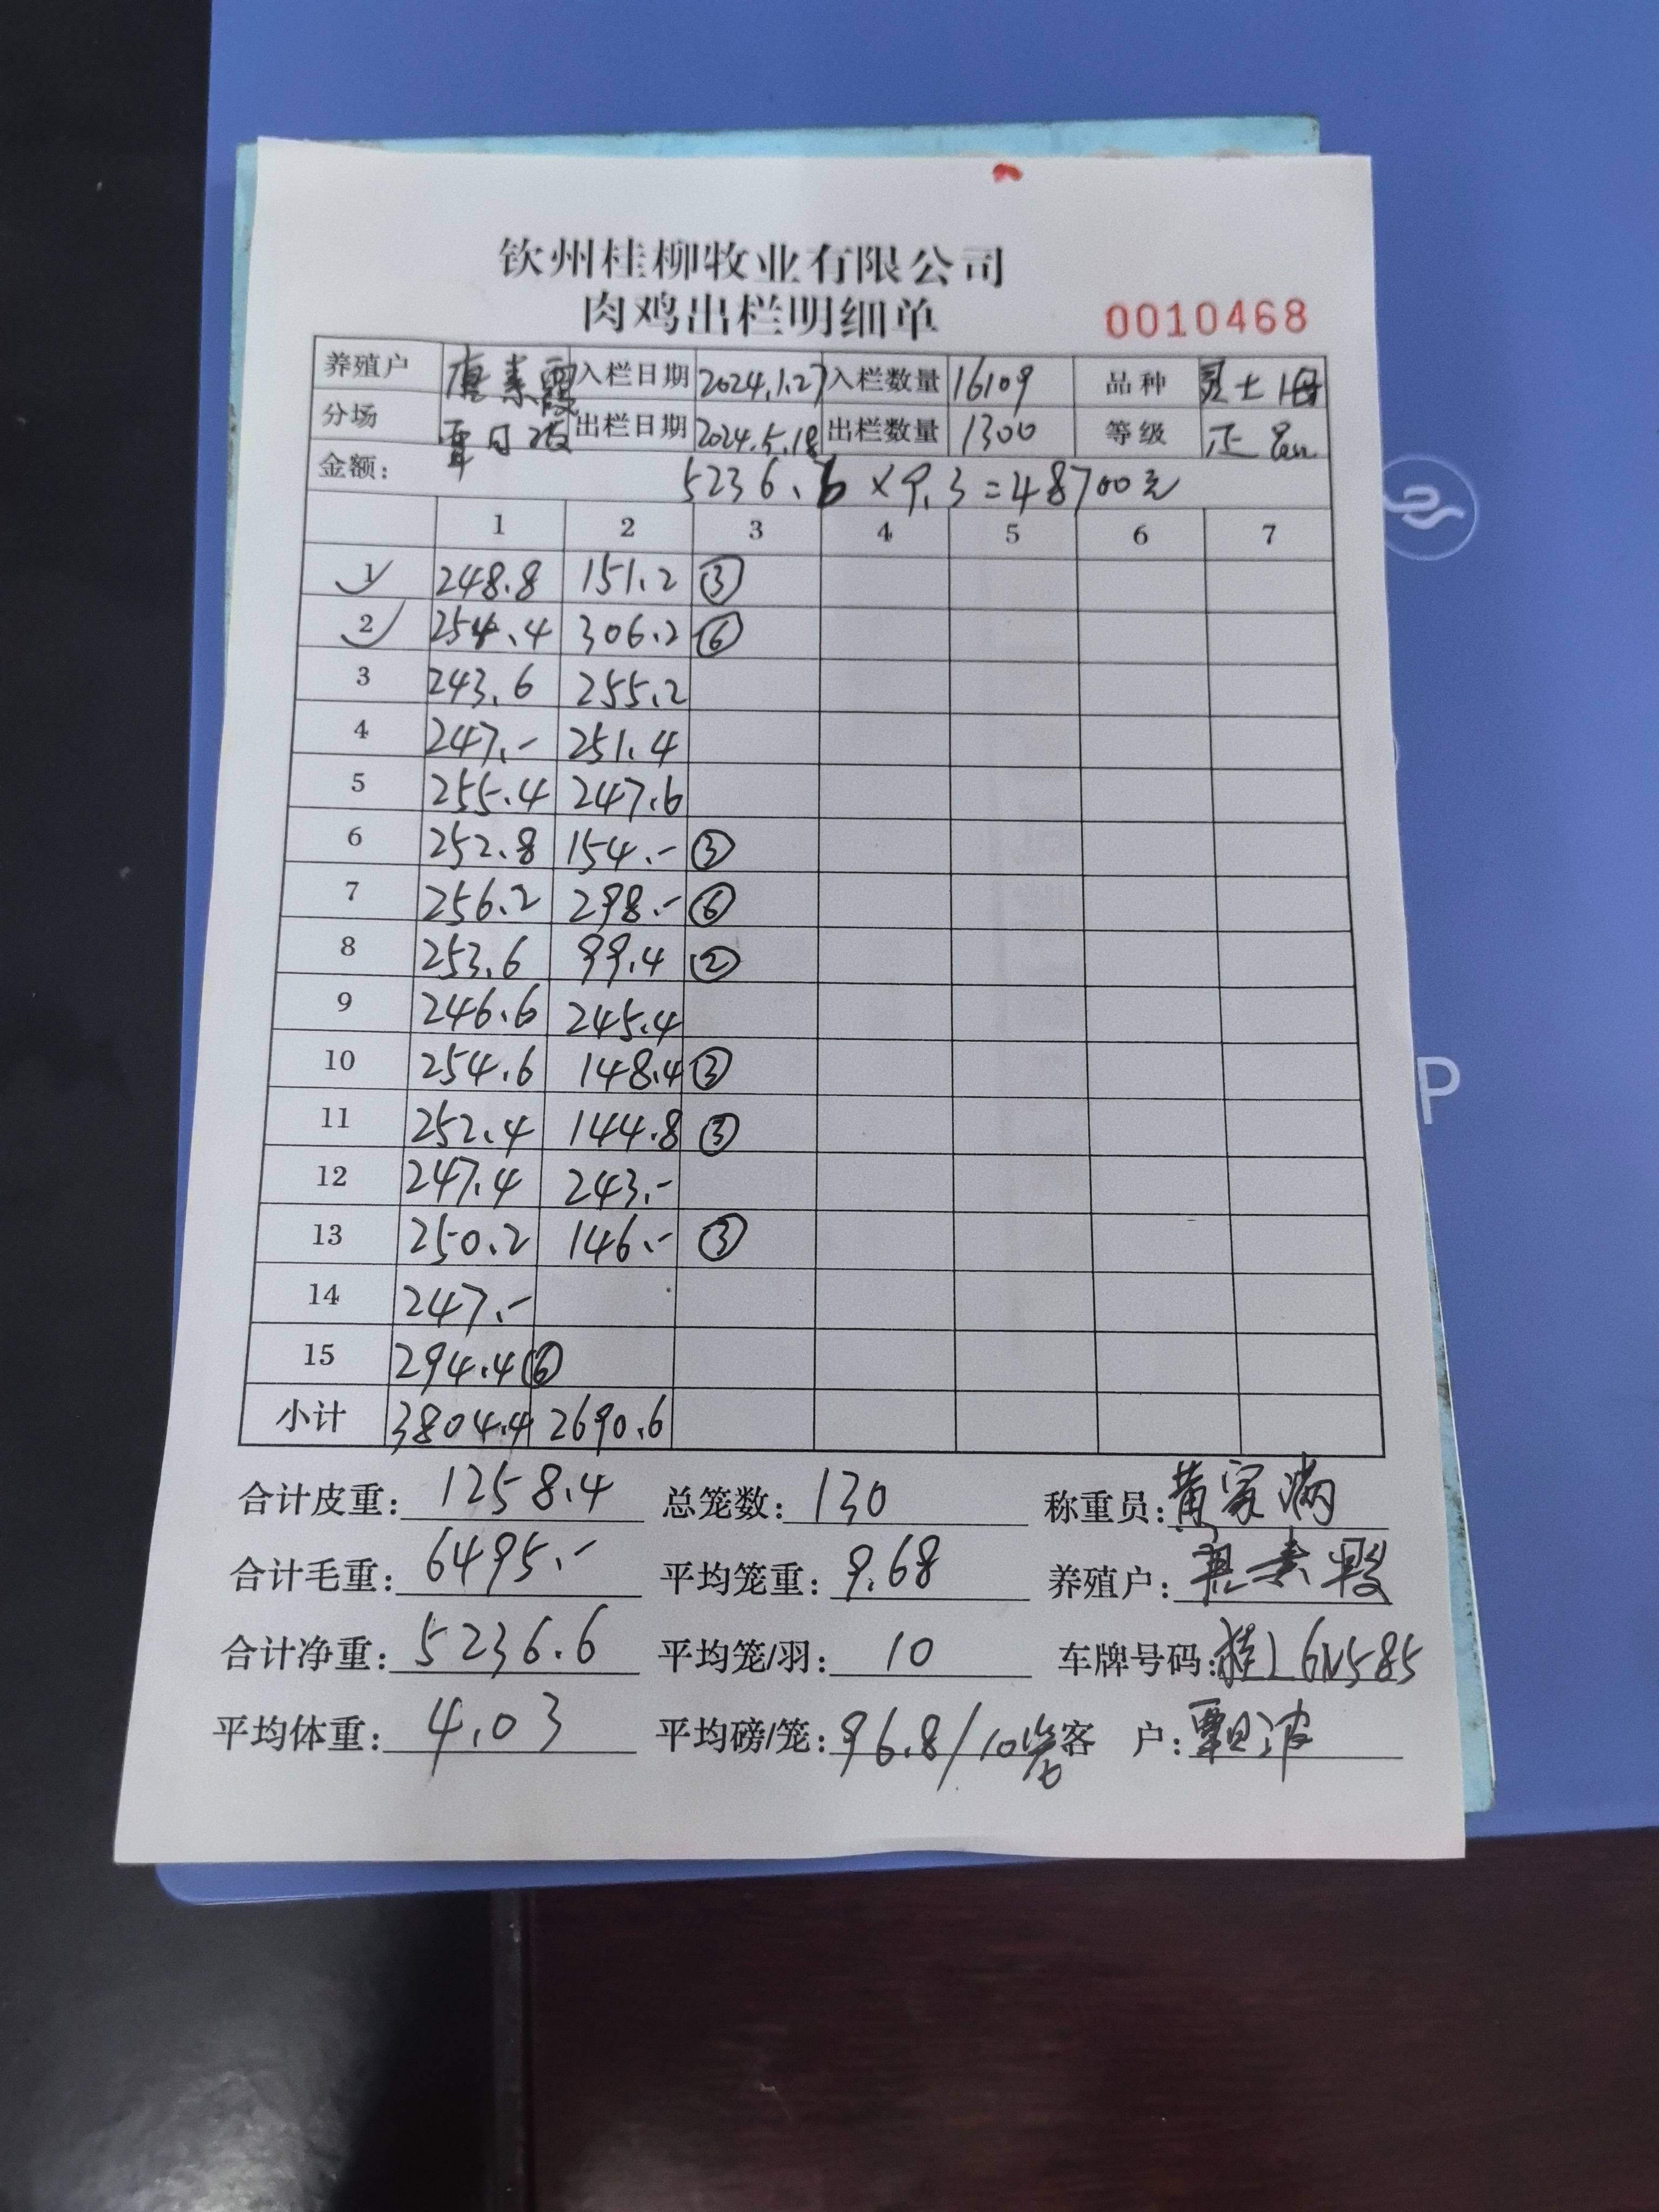 钦州桂柳牧业有限公司
肉鸡出栏明细单 0010468
养殖户 唐素霞 入栏日期 2024.1.27 入栏数量 16109 品种 土
分场 出栏日期 2024.5.18 出栏数量 1300 等级 正品
金额: 5236.6×9.3=48700元
1 2 3 4 5 6 7
1 248.8 151.2 ③
2 254.4 306.2 ⑥
3 243.6 255.2
4 247.- 251.4
5 255.4 247.6
6 252.8 154.- ③
7 256.2 298.- ⑥
8 253.6 99.4 ②
9 246.6 245.4
10 254.6 148.4 ③
11 252.4 144.8 ③
12 247.4 243.-
13 250.2 146.- ③
14 247.-
15 294.4 ⑥
小计 3804.4 2690.6
合计皮重: 1258.4 总笼数: 130 称重员: 黄家满
合计毛重: 6495.- 平均笼重: 9.68 养殖户:
合计净重: 5236.6 平均笼/羽: 10 车牌号码: 桂L6N585
平均体重: 4.03 平均磅/笼: 96.8/10笼 客 户:
P